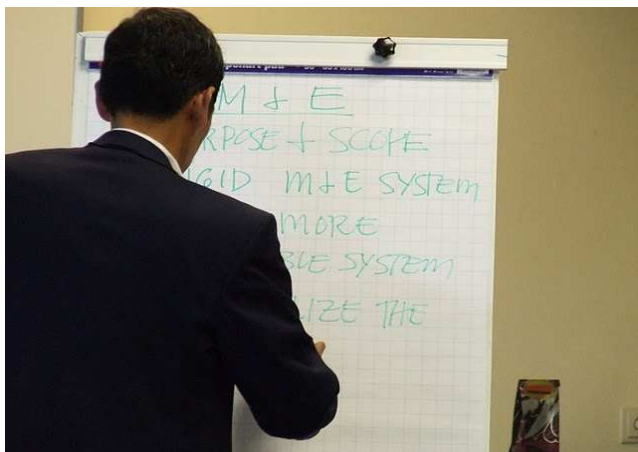 M & E
RPOSE & SCOPE
IGID M&E SYSTEM
MORE
BLE SYSTEM
LIZE THE